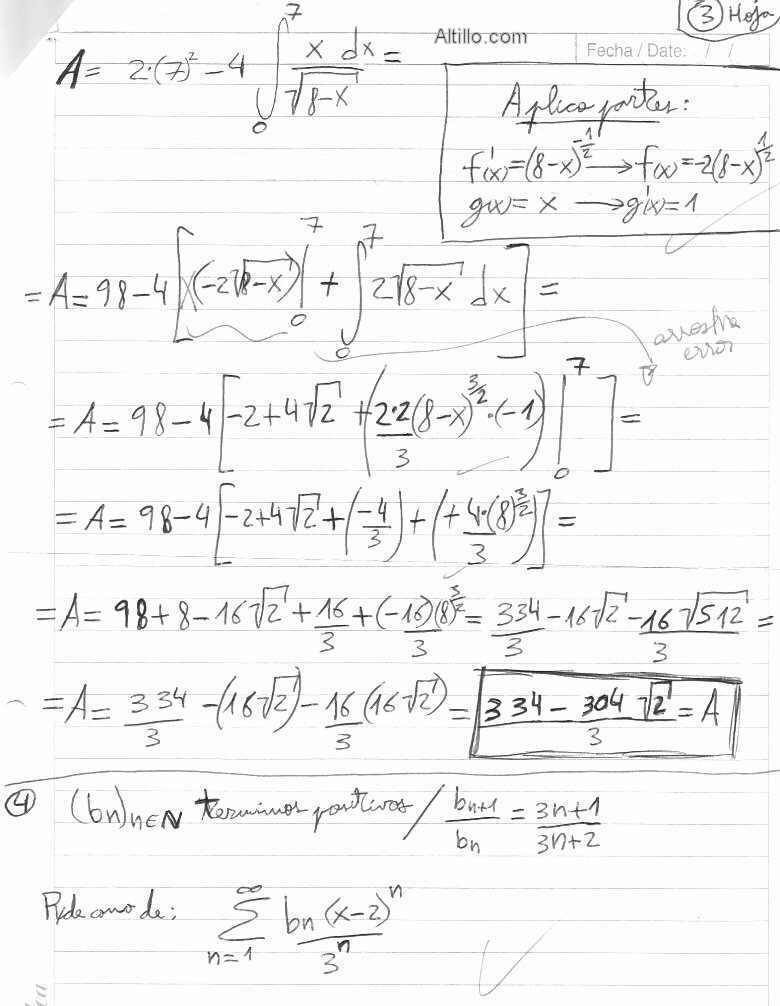 ③ Hoja
Altillo.com
Fecha / Date: / /
A = 2·(7)² − 4 ∫₀⁷ x dx / √(8−x) =
Aplico partes:
f'(x) = (8−x)^(-1/2) → f(x) = −2(8−x)^(1/2)
g(x) = x → g'(x) = 1
= A = 98 − 4 [ x(−2√(8−x)) |₀⁷ + ∫₀⁷ 2√(8−x) dx ] =
arrastra
error
= A = 98 − 4 [ −2 + 4√2 + ( 2·2/3 (8−x)^(3/2) · (−1) ) |₀⁷ ] =
= A = 98 − 4 [ −2 + 4√2 + (−4/3) + ( +4·(8)^(3/2) / 3 ) ] =
= A = 98 + 8 − 16√2 + 16/3 + (−16)/3 (8)^(3/2) = 334/3 − 16√2 − 16√512 / 3 =
= A = 334/3 − (16√2) − 16/3 (16√2) = (334 − 304√2) / 3 = A
④ (bn)n∈N terminos positivos / bn+1 / bn = (3n+1) / (3n+2)
de: ∑ n=1 ∞ bn (x−2)^n / 3^n